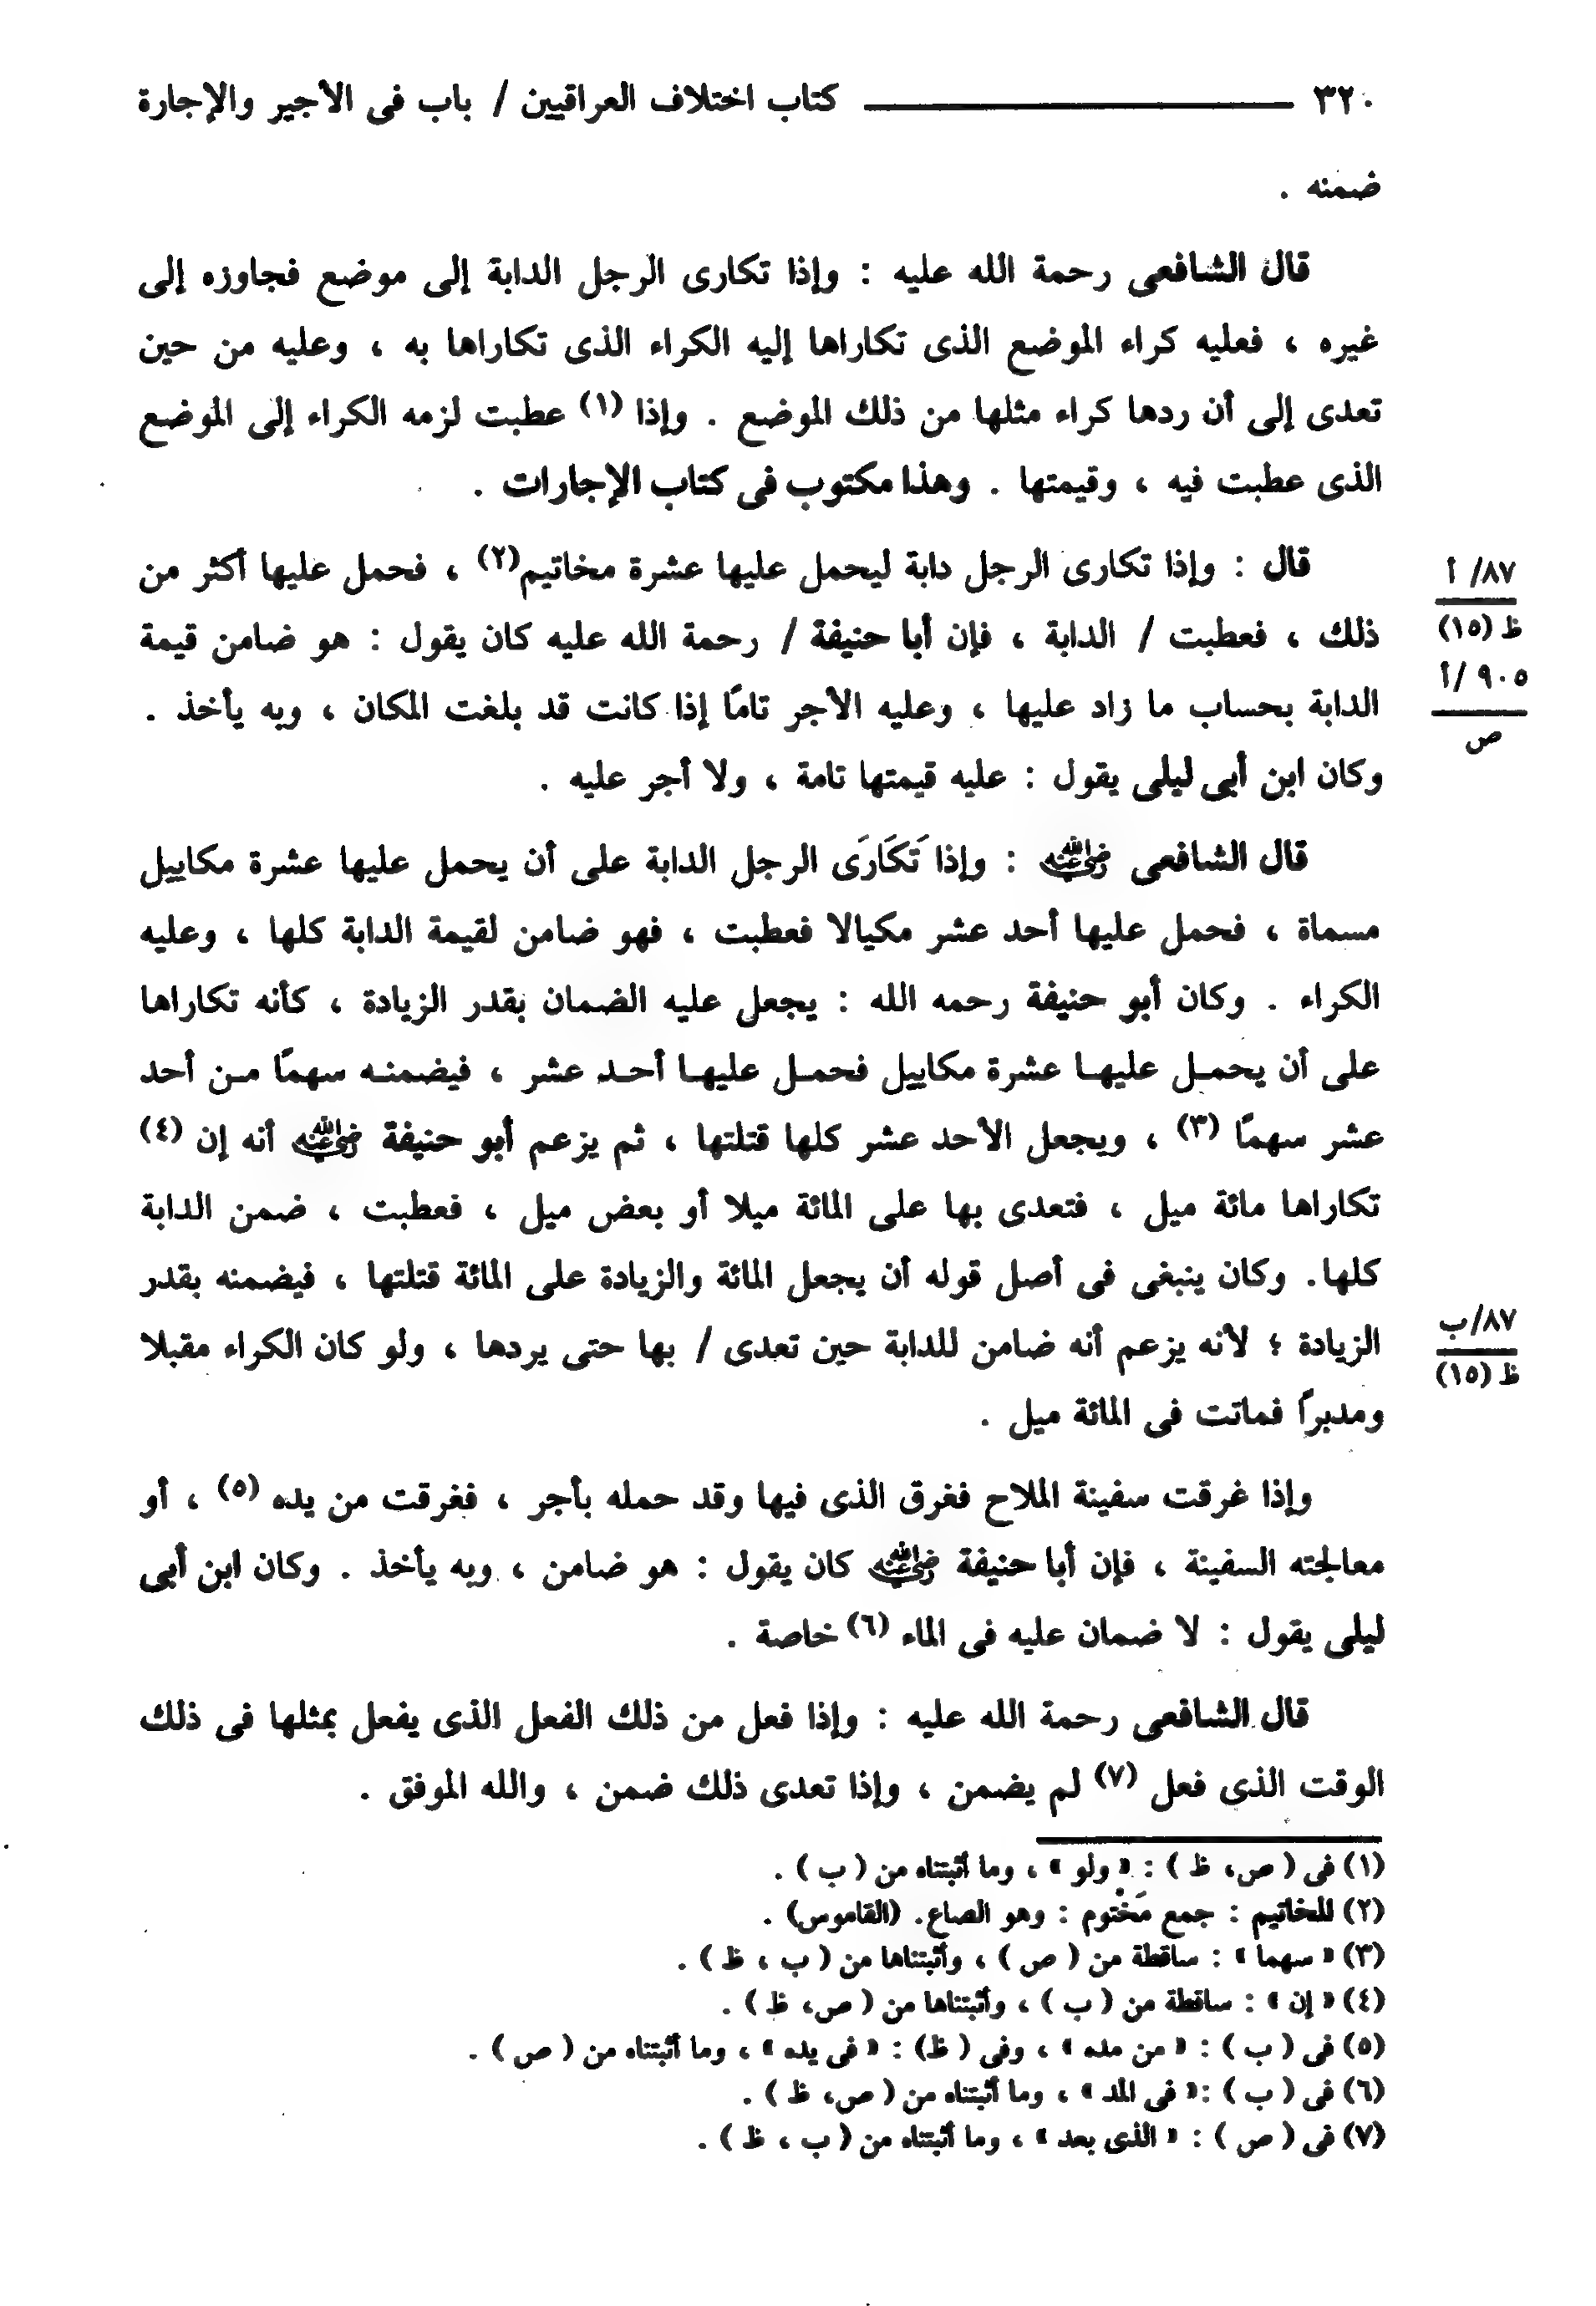 ٣٢٠ كتاب اختلاف العراقيين / باب فى الأجير والإجارة
ضمنه .
قال الشافعى رحمة الله عليه : وإذا تكارى الرجل الدابة إلى موضع فجاوزه إلى
غيره ، فعليه كراء الموضع الذى تكاراها إليه الكراء الذى تكاراها به ، وعليه من حين
تعدى إلى أن ردها كراء مثلها من ذلك الموضع . وإذا (١) عطبت لزمه الكراء إلى الموضع
الذى عطبت فيه ، وقيمتها . وهذا مكتوب فى كتاب الإجارات .
قال : وإذا تكارى الرجل دابة ليحمل عليها عشرة مخاتيم(٢) ، فحمل عليها أكثر من
ذلك ، فعطبت / الدابة ، فإن أبا حنيفة / رحمة الله عليه كان يقول : هو ضامن قيمة
الدابة بحساب ما زاد عليها ، وعليه الأجر تامًا إذا كانت قد بلغت المكان ، وبه يأخذ .
وكان ابن أبى ليلى يقول : عليه قيمتها تامة ، ولا أجر عليه .
٨٧/ أ
ظ (١٥)
٩٠٥ /أ
ص
قال الشافعى رضي الله عنه : وإذا تَكَارَى الرجل الدابة على أن يحمل عليها عشرة مكاييل
مسماة ، فحمل عليها أحد عشر مكيالا فعطبت ، فهو ضامن لقيمة الدابة كلها ، وعليه
الكراء . وكان أبو حنيفة رحمه الله : يجعل عليه الضمان بقدر الزيادة ، كأنه تكاراها
على أن يحمل عليها عشرة مكاييل فحمل عليها أحد عشر ، فيضمنه سهمًا من أحد
عشر سهمًا (٣) ، ويجعل الأحد عشر كلها قتلتها ، ثم يزعم أبو حنيفة رضي الله عنه أنه إن (٤)
تكاراها مائة ميل ، فتعدى بها على المائة ميلا أو بعض ميل ، فعطبت ، ضمن الدابة
كلها. وكان ينبغى فى أصل قوله أن يجعل المائة والزيادة على المائة قتلتها ، فيضمنه بقدر
الزيادة ؛ لأنه يزعم أنه ضامن للدابة حين تعدى / بها حتى يردها ، ولو كان الكراء مقبلا
ومدبرًا فماتت فى المائة ميل .
٨٧/ب
ظ (١٥)
وإذا غرقت سفينة الملاح فغرق الذى فيها وقد حمله بأجر ، فغرقت من يده (٥) ، أو
معالجته السفينة ، فإن أبا حنيفة رضي الله عنه كان يقول : هو ضامن ، وبه يأخذ . وكان ابن أبى
ليلى يقول : لا ضمان عليه فى الماء (٦) خاصة .
قال الشافعى رحمة الله عليه : وإذا فعل من ذلك الفعل الذى يفعل بمثلها فى ذلك
الوقت الذى فعل (٧) لم يضمن ، وإذا تعدى ذلك ضمن ، والله الموفق .
(١) فى ( ص، ظ ) : « ولو » ، وما أثبتناه من ( ب ) .
(٢) المخاتيم : جمع مَخْتوم : وهو الصاع. (القاموس) .
(٣) « سهما » : ساقطة من ( ص ) ، وأثبتناها من ( ب ، ظ ) .
(٤) « إن » : ساقطة من ( ب ) ، وأثبتناها من ( ص، ظ ) .
(٥) فى ( ب ) : « من مده » ، وفى ( ظ) : « فى يده » ، وما أثبتناه من ( ص ) .
(٦) فى ( ب ) :« فى المد » ، وما أثبتناه من ( ص، ظ ) .
(٧) فى ( ص ) : « الذى بعد » ، وما أثبتناه من ( ب ، ظ ) .